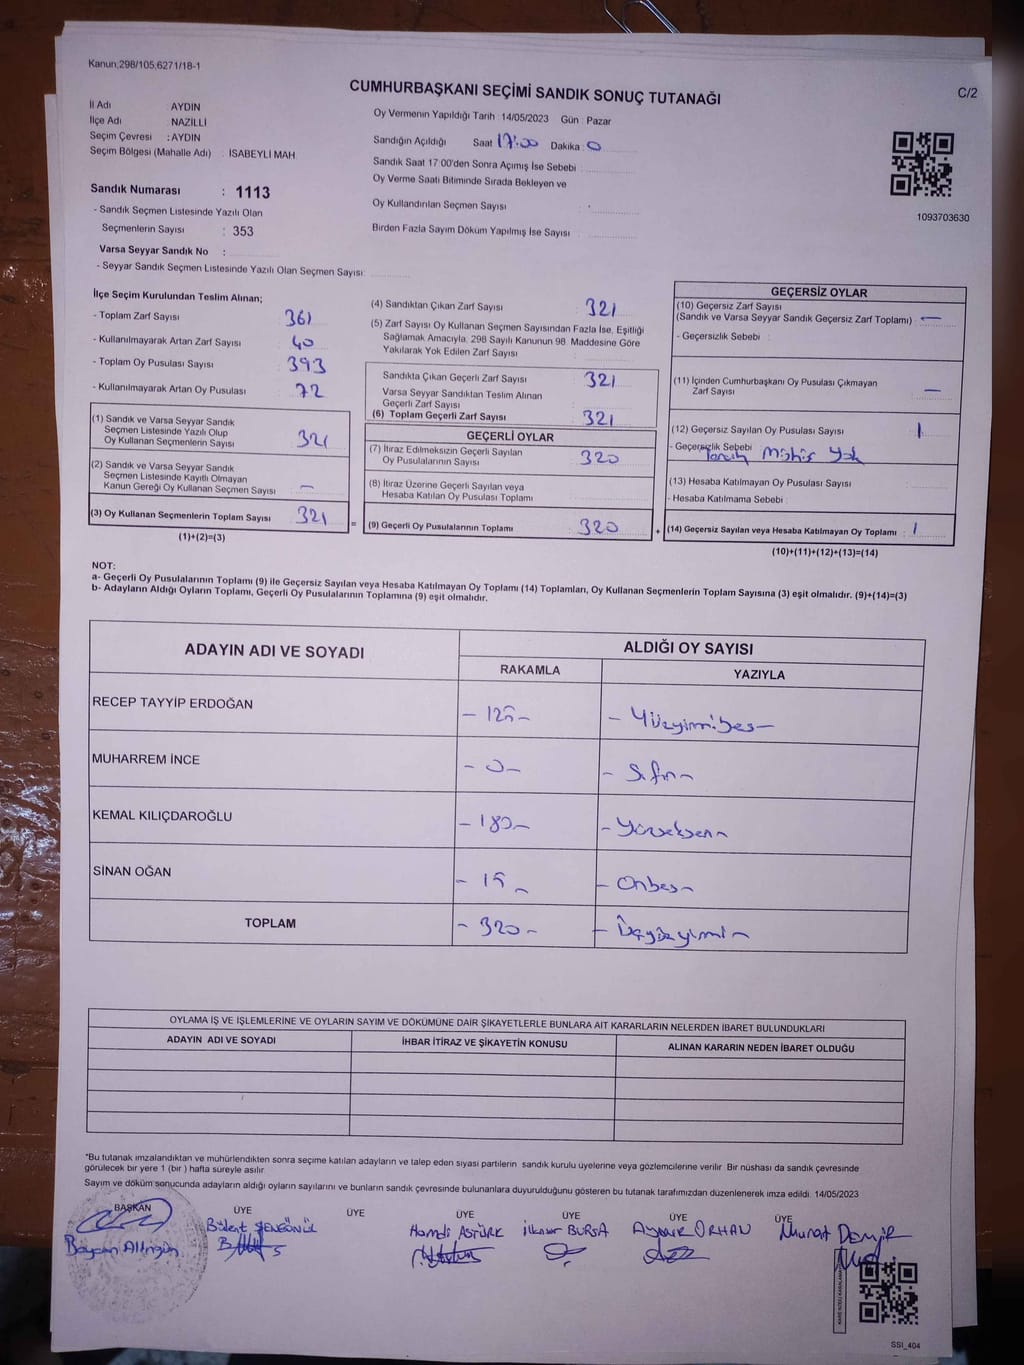 Kanun,298/105,6271/18-1
CUMHURBAŞKANI SEÇİMİ SANDIK SONUÇ TUTANAĞI
C/2
İl Adı AYDIN
İlçe Adı NAZİLLİ
Seçim Çevresi : AYDIN
Seçim Bölgesi (Mahalle Adı) : İSABEYLİ MAH
Sandık Numarası : 1113
- Sandık Seçmen Listesinde Yazılı Olan
Seçmenlerin Sayısı : 353
Varsa Seyyar Sandık No :
- Seyyar Sandık Seçmen Listesinde Yazılı Olan Seçmen Sayısı:
Oy Vermenin Yapıldığı Tarih : 14/05/2023 Gün : Pazar
Sandığın Açıldığı Saat 17:00 Dakika : 0
Sandık Saat 17 00'den Sonra Açımış İse Sebebi :
Oy Verme Saati Bitiminde Sırada Bekleyen ve
Oy Kullandırılan Seçmen Sayısı :
Birden Fazla Sayım Döküm Yapılmış İse Sayısı :
1093703630
İlçe Seçim Kurulundan Teslim Alınan;
- Toplam Zarf Sayısı : 361
- Kullanılmayarak Artan Zarf Sayısı : 40
- Toplam Oy Pusulası Sayısı : 393
- Kullanılmayarak Artan Oy Pusulası : 72
(1) Sandık ve Varsa Seyyar Sandık
Seçmen Listesinde Yazılı Olup
Oy Kullanan Seçmenlerin Sayısı : 321
(2) Sandık ve Varsa Seyyar Sandık
Seçmen Listesinde Kayıtlı Olmayan
Kanun Gereği Oy Kullanan Seçmen Sayısı : —
(3) Oy Kullanan Seçmenlerin Toplam Sayısı : 321
(1)+(2)=(3)
=
(4) Sandıktan Çıkan Zarf Sayısı : 321
(5) Zarf Sayısı Oy Kullanan Seçmen Sayısından Fazla İse, Eşitliği
Sağlamak Amacıyla 298 Sayılı Kanunun 98. Maddesine Göre
Yakılarak Yok Edilen Zarf Sayısı :
Sandıkta Çıkan Geçerli Zarf Sayısı : 321
Varsa Seyyar Sandıktan Teslim Alınan
Geçerli Zarf Sayısı :
(6) Toplam Geçerli Zarf Sayısı : 321
GEÇERLİ OYLAR
(7) İtiraz Edilmeksizin Geçerli Sayılan
Oy Pusulalarının Sayısı : 320
(8) İtiraz Üzerine Geçerli Sayılan veya
Hesaba Katılan Oy Pusulası Toplamı :
(9) Geçerli Oy Pusulalarının Toplamı : 320
+
GEÇERSİZ OYLAR
(10) Geçersiz Zarf Sayısı
(Sandık ve Varsa Seyyar Sandık Geçersiz Zarf Toplamı) : —
- Geçersizlik Sebebi :
(11) İçinden Cumhurbaşkanı Oy Pusulası Çıkmayan
Zarf Sayısı : —
(12) Geçersiz Sayılan Oy Pusulası Sayısı : 1
- Geçersizlik Sebebi :
Yok
(13) Hesaba Katılmayan Oy Pusulası Sayısı :
- Hesaba Katılmama Sebebi :
(14) Geçersiz Sayılan veya Hesaba Katılmayan Oy Toplamı : 1
(10)+(11)+(12)+(13)=(14)
NOT:
a- Geçerli Oy Pusulalarının Toplamı (9) ile Geçersiz Sayılan veya Hesaba Katılmayan Oy Toplamı (14) Toplamları, Oy Kullanan Seçmenlerin Toplam Sayısına (3) eşit olmalıdır. (9)+(14)=(3)
b- Adayların Aldığı Oyların Toplamı, Geçerli Oy Pusulalarının Toplamına (9) eşit olmalıdır.
ADAYIN ADI VE SOYADI ALDIĞI OY SAYISI
RAKAMLA YAZIYLA
RECEP TAYYİP ERDOĞAN - 125 - - Yüzyirmibeş -
MUHARREM İNCE - 0 - - Sıfır -
KEMAL KILIÇDAROĞLU - 180 - - Yüzseksen -
SİNAN OĞAN - 15 - - Onbeş -
TOPLAM - 320 - - Üçyüzyirmi -
OYLAMA İŞ VE İŞLEMLERİNE VE OYLARIN SAYIM VE DÖKÜMÜNE DAİR ŞİKAYETLERLE BUNLARA AİT KARARLARIN NELERDEN İBARET BULUNDUKLARI
ADAYIN ADI VE SOYADI İHBAR İTİRAZ VE ŞİKAYETİN KONUSU ALINAN KARARIN NEDEN İBARET OLDUĞU
*Bu tutanak imzalandıktan ve mühürlendikten sonra seçime katılan adayların ve talep eden siyasi partilerin sandık kurulu üyelerine veya gözlemcilerine verilir. Bir nüshası da sandık çevresinde
görülecek bir yere 1 (bir ) hafta süreyle asılır
Sayım ve döküm sonucunda adayların aldığı oyların sayılarını ve bunların sandık çevresinde bulunanlara duyurulduğunu gösteren bu tutanak tarafımızdan düzenlenerek imza edildi. 14/05/2023
BAŞKAN ÜYE ÜYE ÜYE ÜYE ÜYE ÜYE
Bülent ŞENGÖNÜL Hamdi ASTÜRK İlknur BURSA Aynur ORHAN Murat Demir
SSI_404